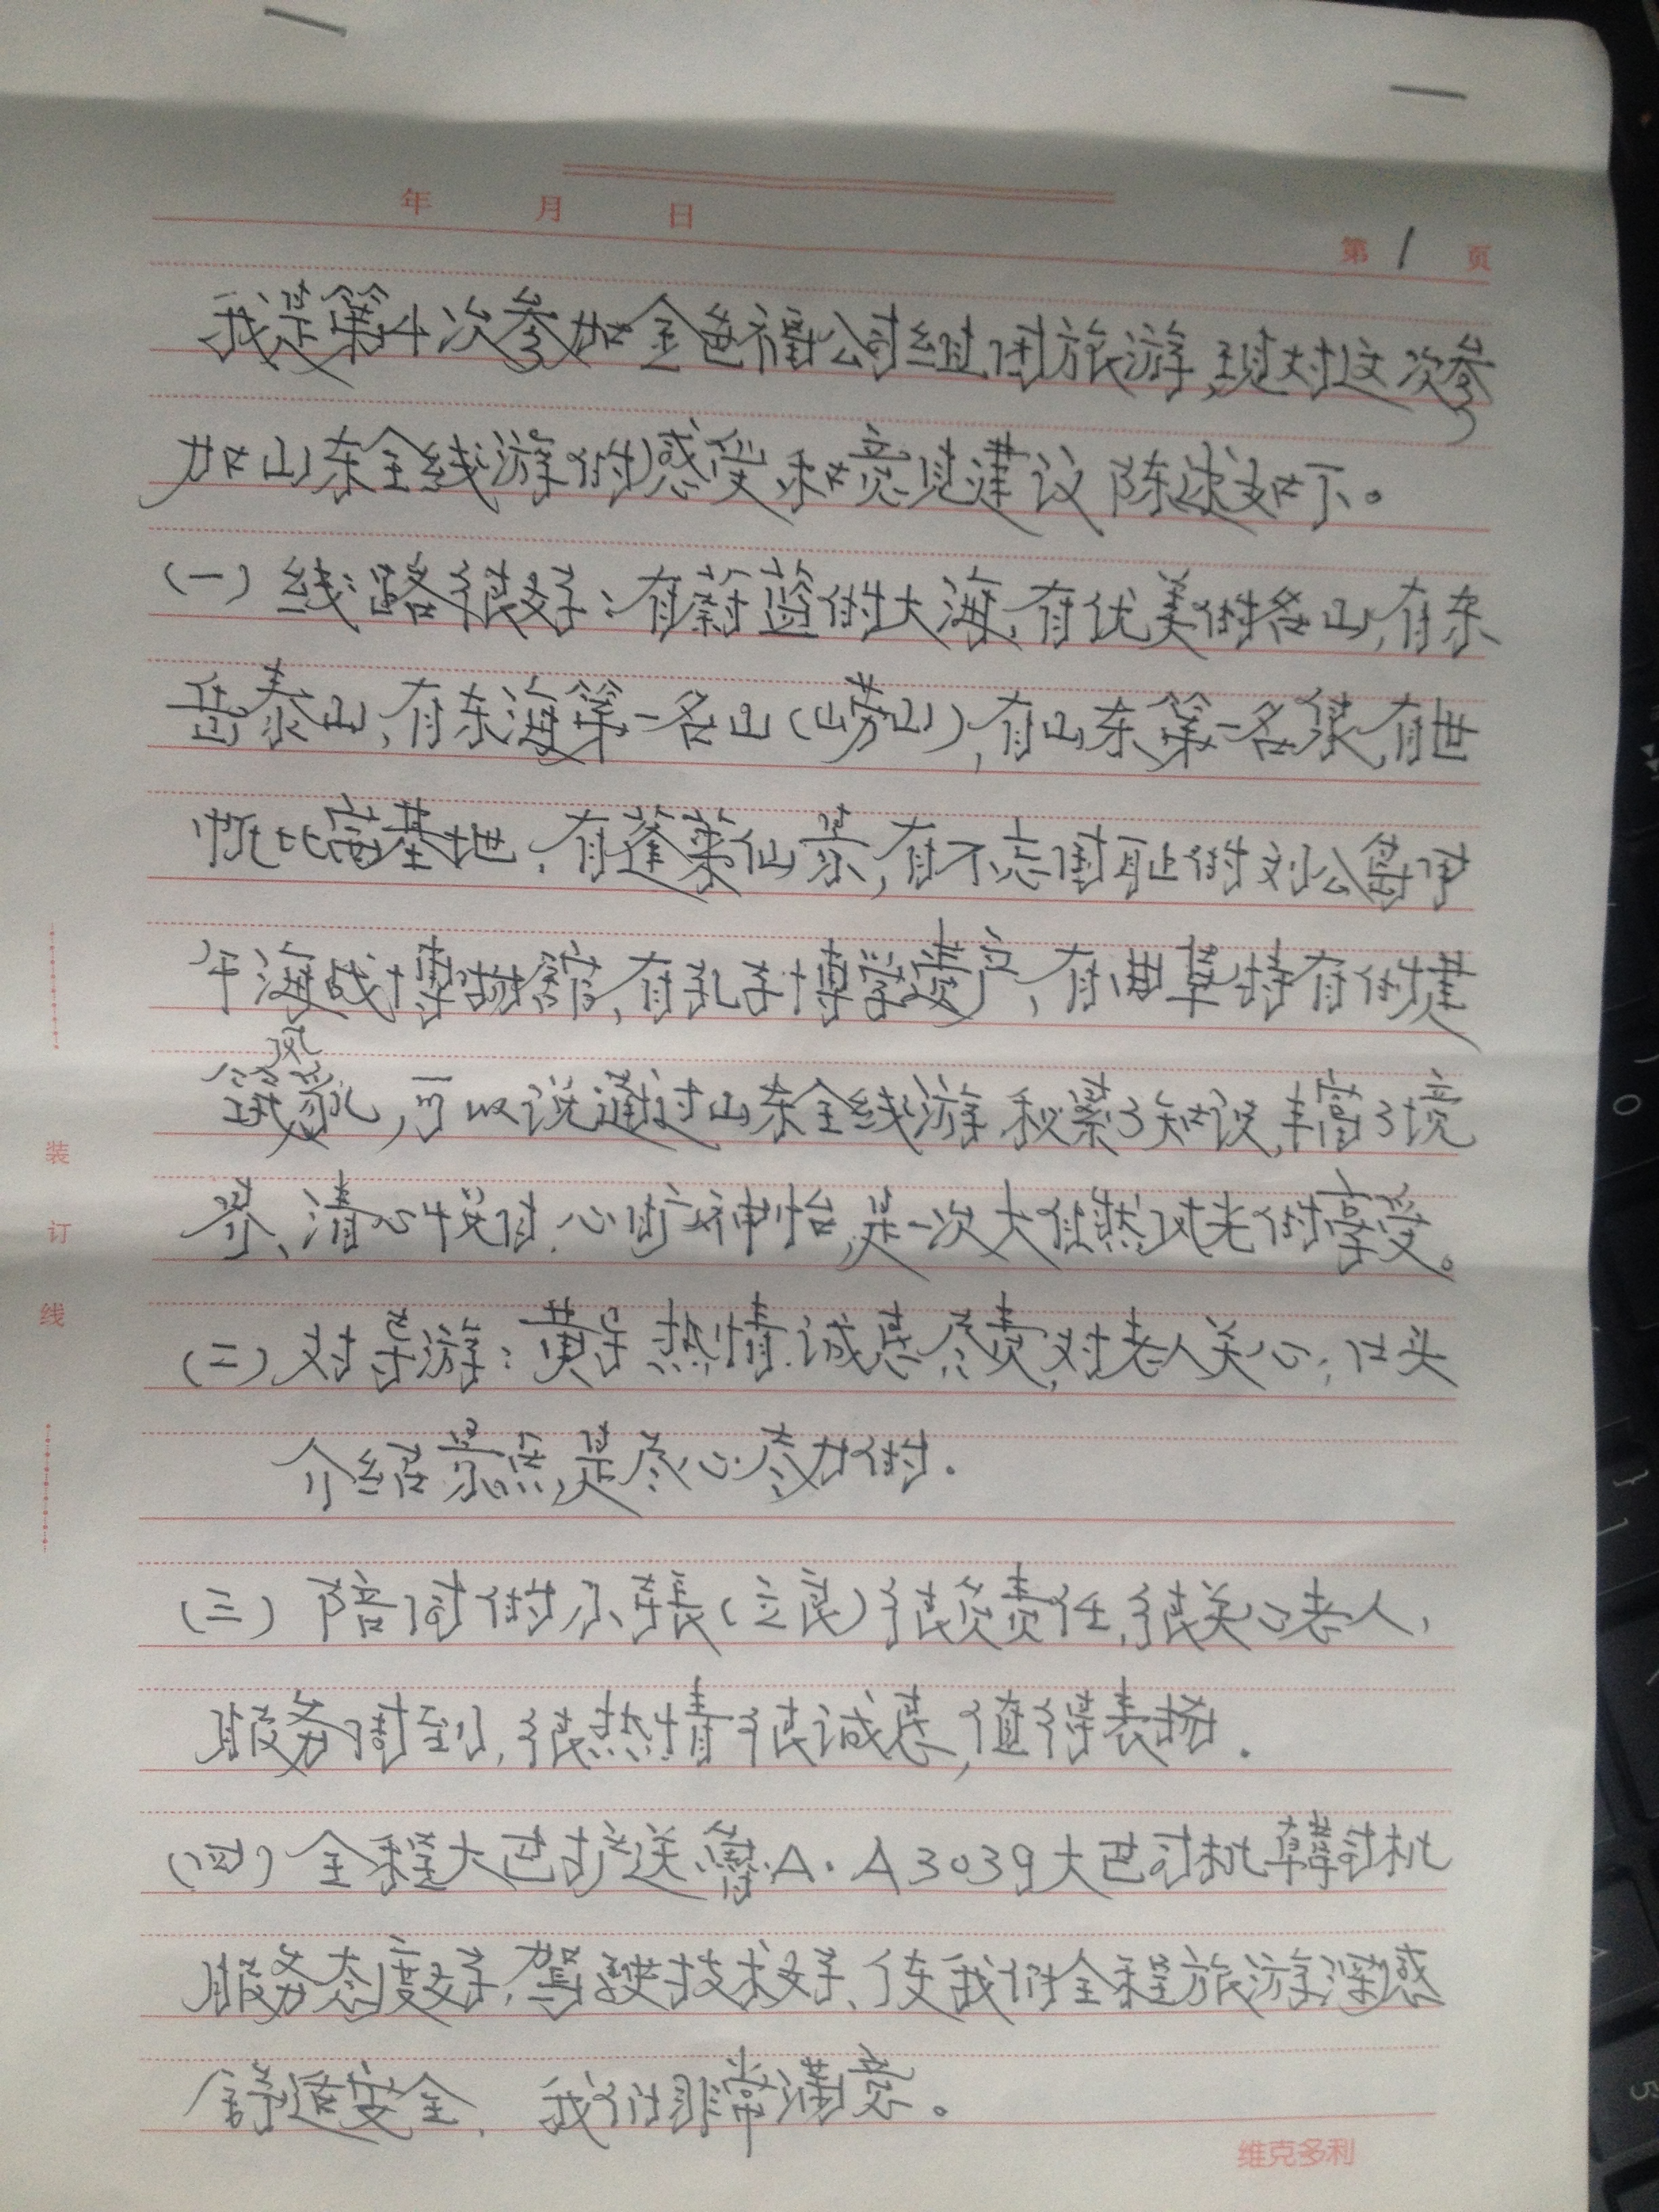 年 月 日
第 1 页
我是第4次参加金色福公司组团旅游,现对这次参
加山东全线游的感受和意见建议陈述如下。
(一)线路很好:有蔚蓝的大海,有优美的名山,有东
岳泰山,有东海第一名山(崂山),有山东第一名泉,有世
帆比赛基地,有蓬莱仙景,有不忘国耻的刘公岛甲
午海战博物馆,有孔子博学遗产,有曲阜特有的建
筑风貌,可以说通过山东全线游,积累了知识,丰富了境
界、清心悦目,心旷神怡,是一次大自然风光的享受。
(二)对导游:黄导热情.诚恳,尽责,对老人关心;口头
介绍景点,是尽心尽力的.
(三)陪同的小张(立良)很负责任,很关心老人,
服务周到,很热情很诚恳,值得表扬.
(四)全程大巴护送鲁A·A3039大巴司机韩司机
服务态度好,驾驶技术好、使我们全程旅游深感
舒适安全, 我们非常满意。
装
订
线
维克多利